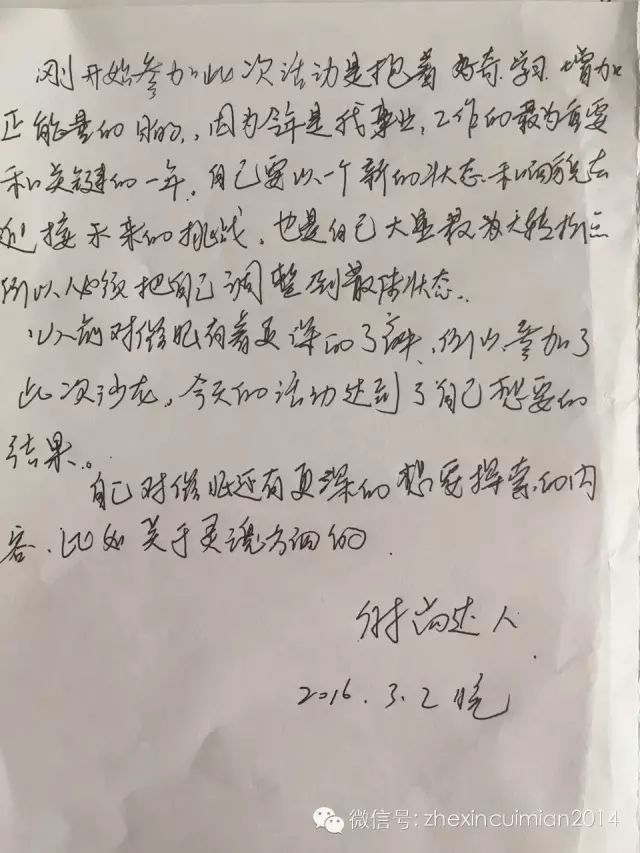 刚开始参加此次活动是抱着好奇.学习.增加
正能量的目的.,因为今年是我事业,工作的最为重要
和关键的一年.自己要以一个新的状态和面貌去
迎接未来的挑战,也是自己人生最为大转折点
所以必须把自己调整到最佳状态.
以前对催眠有着更深的了解,所以参加了
此次沙龙,今天的活动达到了自己想要的
结果。
自己对催眠还有更深的想要探索的内
容.比如关于灵魂方面的.
时尚达人
2016.3.2晚
微信号: zhexincuimian2014